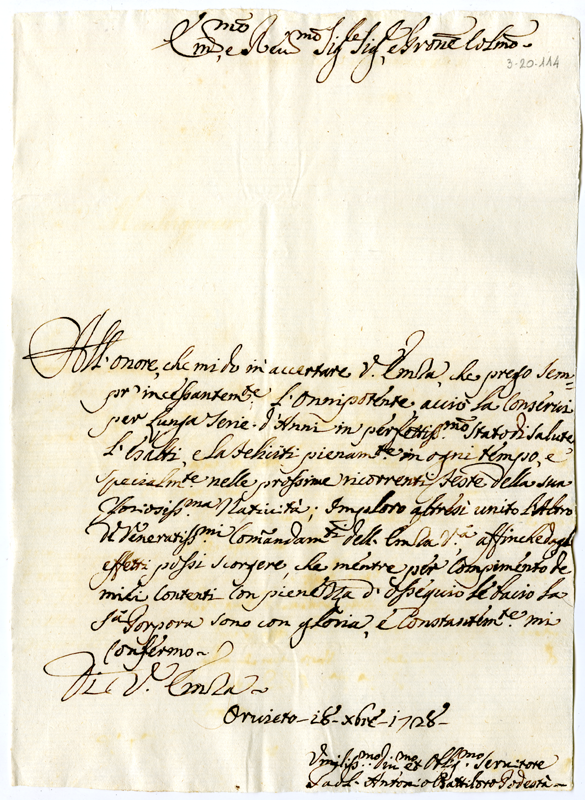 E.mo e Reu.mo Sig.e Sig.e, e Prone Colmo.
3-20-114
All'onore, che mi do in accertare V. Emza, che prego sem=
pr'incessantem.te L'Onnipotente acciò la Conservi
per lunga serie d'Anni in perfettiss.mo Stato di Salute
L'esalti, e la feliciti pienam.te in ogni tempo, e
specialm.te nelle prossime ricorrenti feste della sua
Gloriosiss.ma Natività; Imploro altresì unito
di Veneratiss.mi Comandam.ti dell'Emza V.a affinche dagl
effetti possi scorgere, che mentre per Compimento de
miei Contenti con pienezza d'ossequio le bacio la
S.a Porpora sono con gloria, e Constantem.te mi
Confermo
Di V. Emza
Orvieto 18 Xbre 1728
Vmiliss.mo Diu.mo et Obl.mo Servitore
Antonio Battiloro Podestà